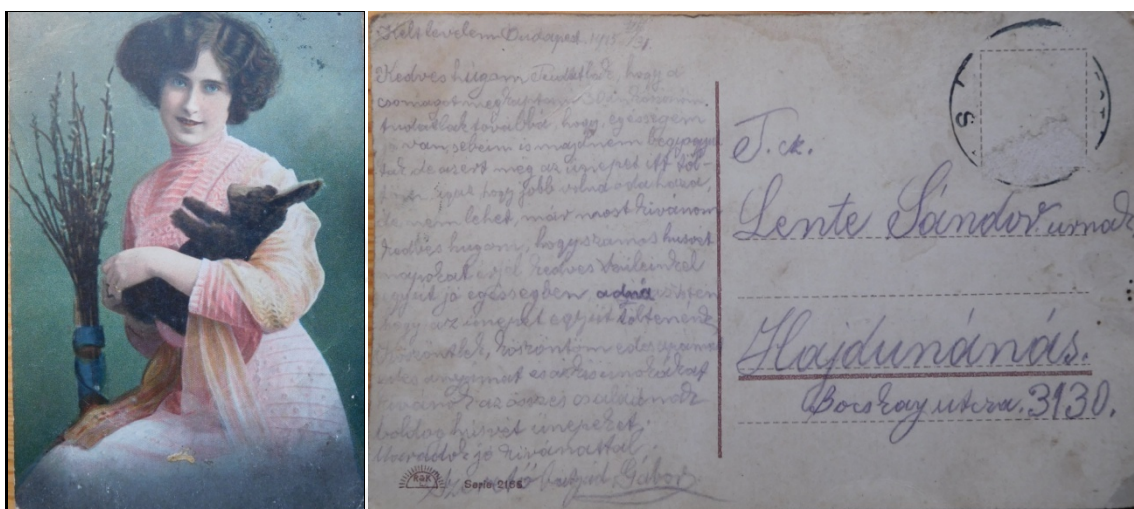 Kelt levelem Budapest 1915 III/31
Kedves húgom Tudatlak, hogy a
csomagot megkaptam
tudatlak továbbá, hogy, egésségem
jó van, sebeim is majdnem
de azert még az ünepet itt töl-
igaz hogy jobb volna oda haza,
de nem lehet, már most kivánom
kedves húgom, hogy számos husvét
napokat érjél kedves szüleinkel
együt jó egésségben adná isten
hogy az ünepet együt töltenénk
köszöntöm édes apámat
édes anyámat
kivánok az összes családnak
boldog husvét ünepeket,
Maradok jó kivánattal
Szerető bátyád Gábor
R&K Serie 2166
T. ck.
Lente Sándor urnak
Hajdunánás.
Bocskay utcza. 3130.